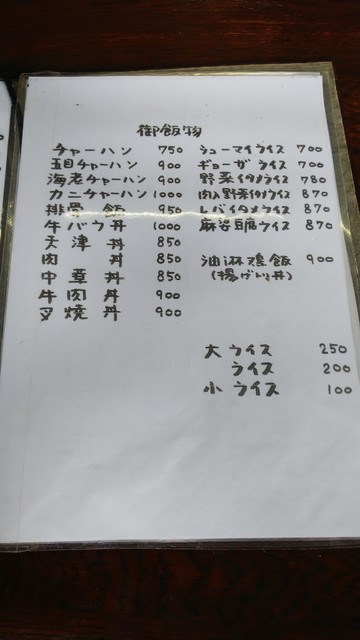 御飯物
チャーハン 750
五目チャーハン 900
海老チャーハン 900
カニチャーハン 1000
排骨飯 950
牛バラ丼 1000
天津丼 850
肉丼 850
中華丼 850
牛肉丼 900
叉焼丼 900
シューマイライス 700
ギョーザライス 700
野菜イタメライス 780
肉入野菜イタメライス 870
レバイタメライス 870
麻婆豆腐ライス 870
油淋鶏飯 900
(揚げトリ丼)
大ライス 250
ライス 200
小ライス 100